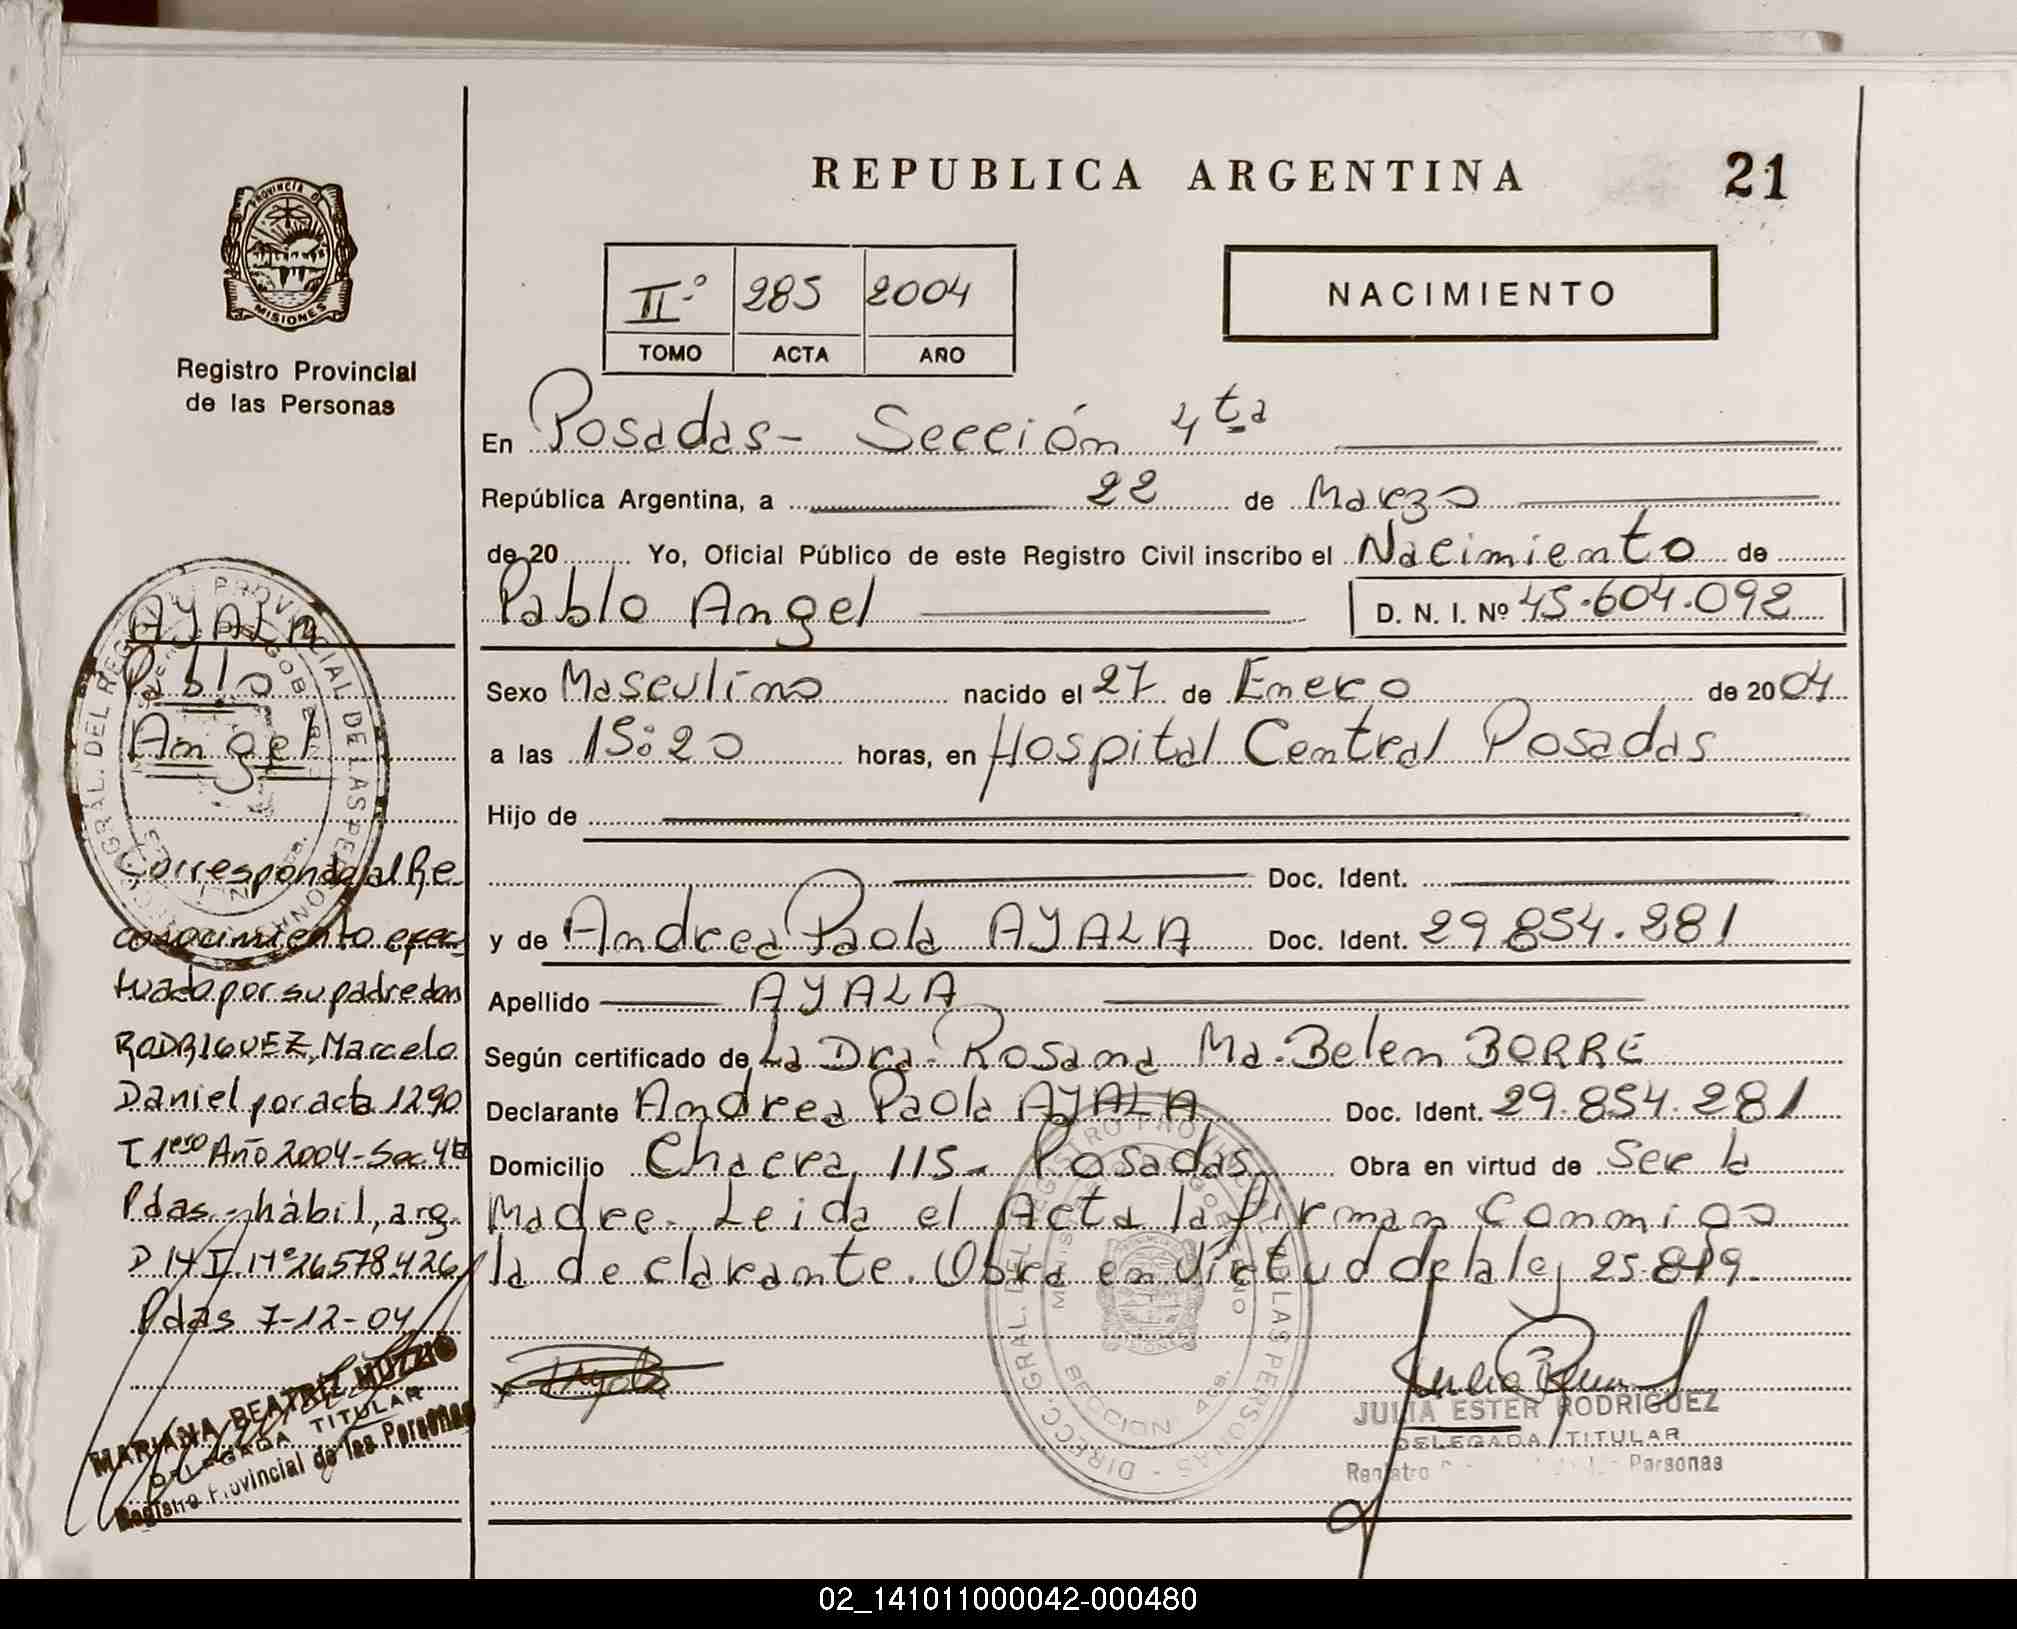 REPUBLICA ARGENTINA
21
PROVINCIA DE
MISIONES
Registro Provincial
de las Personas
II.° 285 2004
TOMO ACTA AÑO
NACIMIENTO
En Posadas - Sección 4ta
República Argentina, a 22 de Marzo
de 20 Yo, Oficial Público de este Registro Civil inscribo el Nacimiento de
Pablo Angel D. N. I. Nº 45.604.092
Sexo Masculino nacido el 27 de Enero de 2004
a las 15:20 horas, en Hospital Central Posadas
Hijo de
Doc. Ident.
y de Andrea Paola AYALA Doc. Ident. 29.854.281
Apellido AYALA
Según certificado de La Dra. Rosana Ma. Belen BORRE
Declarante Andrea Paola AYALA Doc. Ident. 29.854.281
Domicilio Chacra 115 - Posadas Obra en virtud de Ser la
Madre. Leida el Acta la firman Conmigo
la declarante. Obra en Virtud de la ley 25.819.
AYALA
Pablo
Angel
Corresponde al Re-
conocimiento efec-
tuado por su padre don
RODRIGUEZ, Marcelo
Daniel por acta 1290
T 1ero Año 2004 - Sec 4ta
Pdas - hábil, arg.
D N I. Nº 26578426
Pdas 7-12-04
MARIANA BEATRIZ MUZZIO
DELEGADA TITULAR
Registro Provincial de las Personas
DIRECC. GRAL. DEL REGISTRO PROVINCIAL DE LAS PERSONAS
SECCION 4ta.
JULIA ESTER RODRIGUEZ
DELEGADA TITULAR
Registro Personas
02_141011000042-000480